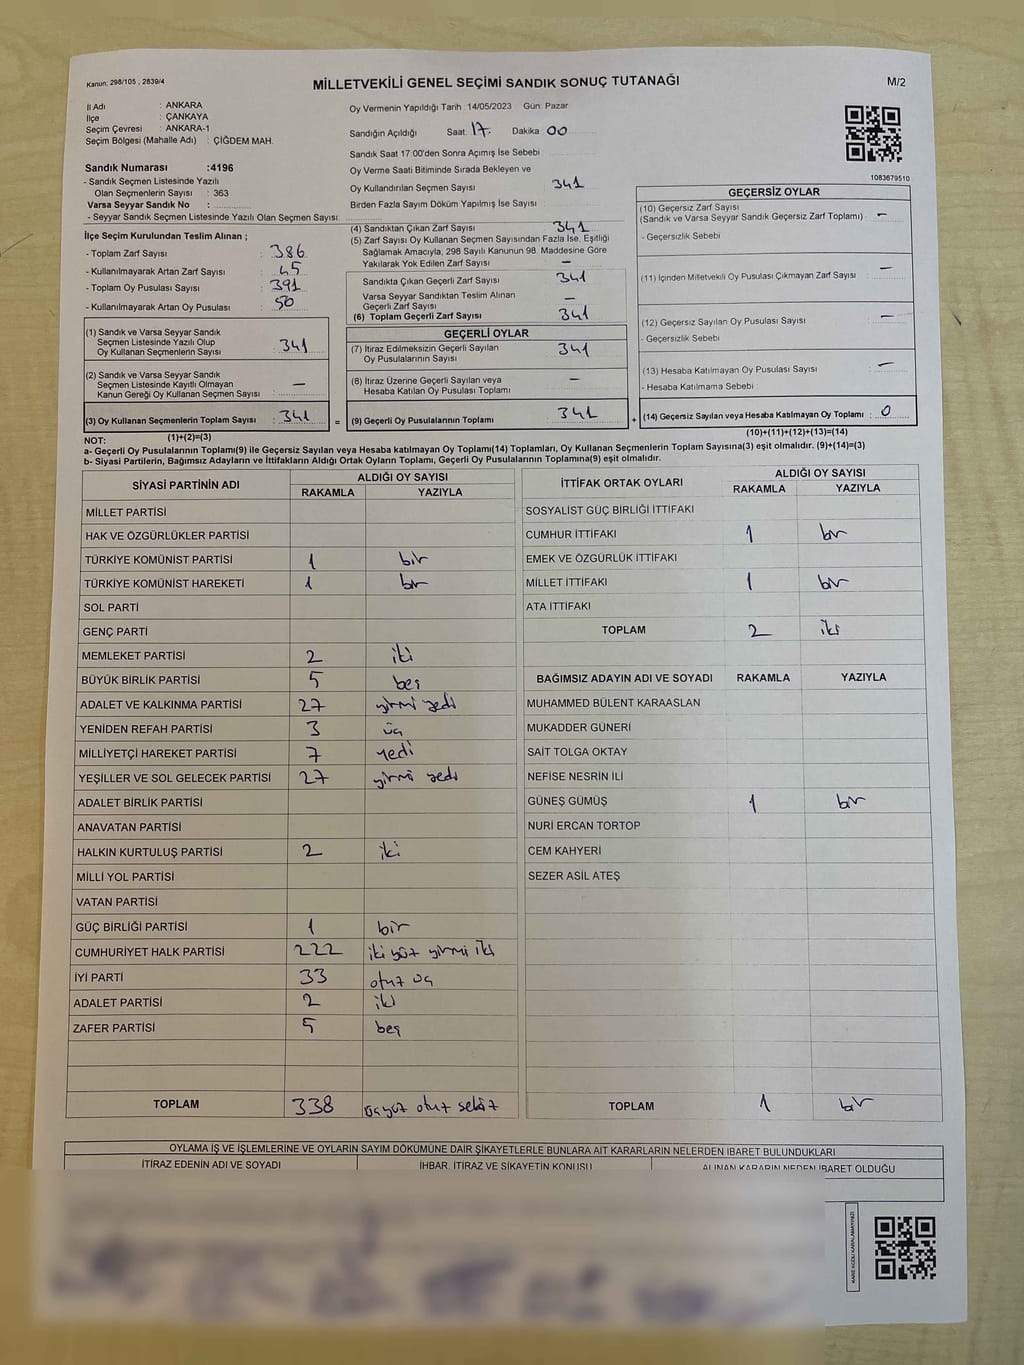 Kanun: 298/105 , 2839/4
MİLLETVEKİLİ GENEL SEÇİMİ SANDIK SONUÇ TUTANAĞI
M/2
İl Adı : ANKARA
İlçe : ÇANKAYA
Seçim Çevresi : ANKARA-1
Seçim Bölgesi (Mahalle Adı) : ÇİĞDEM MAH.
Sandık Numarası :4196
- Sandık Seçmen Listesinde Yazılı
Olan Seçmenlerin Sayısı : 363
Varsa Seyyar Sandık No :
- Seyyar Sandık Seçmen Listesinde Yazılı Olan Seçmen Sayısı:
İlçe Seçim Kurulundan Teslim Alınan ;
- Toplam Zarf Sayısı : 386
- Kullanılmayarak Artan Zarf Sayısı : 45
- Toplam Oy Pusulası Sayısı : 391
- Kullanılmayarak Artan Oy Pusulası : 50
(1) Sandık ve Varsa Seyyar Sandık
Seçmen Listesinde Yazılı Olup
Oy Kullanan Seçmenlerin Sayısı : 341
(2) Sandık ve Varsa Seyyar Sandık
Seçmen Listesinde Kayıtlı Olmayan
Kanun Gereği Oy Kullanan Seçmen Sayısı : –
(3) Oy Kullanan Seçmenlerin Toplam Sayısı : 341
(1)+(2)=(3)
Oy Vermenin Yapıldığı Tarih :14/05/2023 Gün: Pazar
Sandığın Açıldığı Saat 17. Dakika 00
Sandık Saat 17:00'den Sonra Açımış İse Sebebi :
Oy Verme Saati Bitiminde Sırada Bekleyen ve
Oy Kullandırılan Seçmen Sayısı : 341
Birden Fazla Sayım Döküm Yapılmış İse Sayısı :
(4) Sandıktan Çıkan Zarf Sayısı : 341
(5) Zarf Sayısı Oy Kullanan Seçmen Sayısından Fazla İse, Eşitliği
Sağlamak Amacıyla; 298 Sayılı Kanunun 98. Maddesine Göre
Yakılarak Yok Edilen Zarf Sayısı : –
Sandıkta Çıkan Geçerli Zarf Sayısı : 341
Varsa Seyyar Sandıktan Teslim Alınan
Geçerli Zarf Sayısı : –
(6) Toplam Geçerli Zarf Sayısı : 341
GEÇERLİ OYLAR
(7) İtiraz Edilmeksizin Geçerli Sayılan
Oy Pusulalarının Sayısı : 341
(8) İtiraz Üzerine Geçerli Sayılan veya
Hesaba Katılan Oy Pusulası Toplamı : –
= (9) Geçerli Oy Pusulalarının Toplamı : 341
1083679510
GEÇERSİZ OYLAR
(10) Geçersiz Zarf Sayısı
(Sandık ve Varsa Seyyar Sandık Geçersiz Zarf Toplamı) : –
- Geçersizlik Sebebi
(11) İçinden Milletvekili Oy Pusulası Çıkmayan Zarf Sayısı : –
(12) Geçersiz Sayılan Oy Pusulası Sayısı : –
- Geçersizlik Sebebi
(13) Hesaba Katılmayan Oy Pusulası Sayısı : –
- Hesaba Katılmama Sebebi :
+ (14) Geçersiz Sayılan veya Hesaba Katılmayan Oy Toplamı : 0
(10)+(11)+(12)+(13)=(14)
NOT:
a- Geçerli Oy Pusulalarının Toplamı(9) ile Geçersiz Sayılan veya Hesaba katılmayan Oy Toplamı(14) Toplamları, Oy Kullanan Seçmenlerin Toplam Sayısına(3) eşit olmalıdır. (9)+(14)=(3)
b- Siyasi Partilerin, Bağımsız Adayların ve İttifakların Aldığı Ortak Oyların Toplamı, Geçerli Oy Pusulalarının Toplamına(9) eşit olmalıdır.
SİYASİ PARTİNİN ADI ALDIĞI OY SAYISI
RAKAMLA YAZIYLA
MİLLET PARTİSİ
HAK VE ÖZGÜRLÜKLER PARTİSİ
TÜRKİYE KOMÜNİST PARTİSİ 1 bir
TÜRKİYE KOMÜNİST HAREKETİ 1 bir
SOL PARTİ
GENÇ PARTİ
MEMLEKET PARTİSİ 2 iki
BÜYÜK BİRLİK PARTİSİ 5 beş
ADALET VE KALKINMA PARTİSİ 27 yirmi yedi
YENİDEN REFAH PARTİSİ 3 üç
MİLLİYETÇİ HAREKET PARTİSİ 7 yedi
YEŞİLLER VE SOL GELECEK PARTİSİ 27 yirmi yedi
ADALET BİRLİK PARTİSİ
ANAVATAN PARTİSİ
HALKIN KURTULUŞ PARTİSİ 2 iki
MİLLİ YOL PARTİSİ
VATAN PARTİSİ
GÜÇ BİRLİĞİ PARTİSİ 1 bir
CUMHURİYET HALK PARTİSİ 222 iki yüz yirmi iki
İYİ PARTİ 33 otuz üç
ADALET PARTİSİ 2 iki
ZAFER PARTİSİ 5 beş
TOPLAM 338 üçyüz otuz sekiz
İTTİFAK ORTAK OYLARI ALDIĞI OY SAYISI
RAKAMLA YAZIYLA
SOSYALİST GÜÇ BİRLİĞİ İTTİFAKI
CUMHUR İTTİFAKI 1 bir
EMEK VE ÖZGÜRLÜK İTTİFAKI
MİLLET İTTİFAKI 1 bir
ATA İTTİFAKI
TOPLAM 2 iki
BAĞIMSIZ ADAYIN ADI VE SOYADI RAKAMLA YAZIYLA
MUHAMMED BÜLENT KARAASLAN
MUKADDER GÜNERİ
SAİT TOLGA OKTAY
NEFİSE NESRİN İLİ
GÜNEŞ GÜMÜŞ 1 bir
NURİ ERCAN TORTOP
CEM KAHYERİ
SEZER ASİL ATEŞ
TOPLAM 1 bir
OYLAMA İŞ VE İŞLEMLERİNE VE OYLARIN SAYIM DÖKÜMÜNE DAİR ŞİKAYETLERLE BUNLARA AİT KARARLARIN NELERDEN İBARET BULUNDUKLARI
İTİRAZ EDENİN ADI VE SOYADI İHBAR, İTİRAZ VE ŞİKAYETİN KONUSU ALINAN KARARIN NEDEN İBARET OLDUĞU
KARE KODU KARALAMAYINIZ!